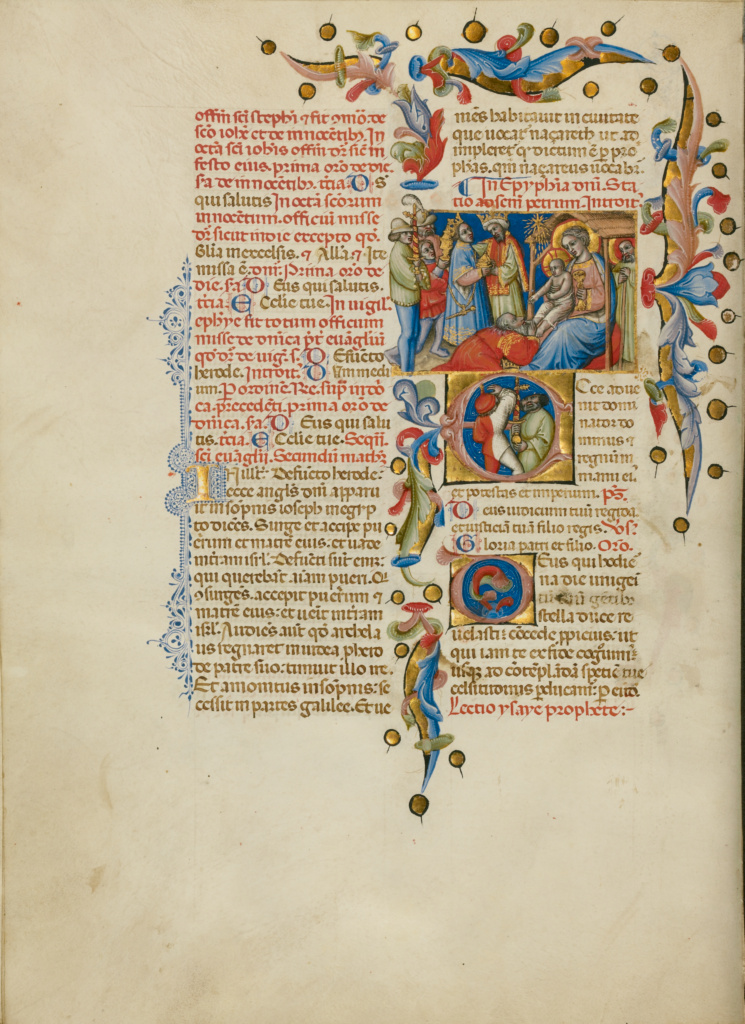 offm sci stephi ⁊ fit ꝯmō. de
scō iohē et de innocentibꝰ. In
octā sci iohīs offm dr̄ sic̄ in
festo eius. prima orō de dic.
sā de innocentibꝰ. t̄cia. Ds̄
qui salutis In octā scōrum
innocentum. officiū misse
dr̄ sicut in die excepto qō.
Glia in excelsis. ⁊ Alla ⁊ Ite
missa ē. dnī: Prima orō de
die. sā. Deus qui salutis.
t̄cia: Ecclie tue. In uigil.
ephye fit totum officium
misse de dnica pt̄ euāgliū
qō dr̄ de uig. s. Defūcto
herode. Introit. Dum medi
um. Pōt oīne. Re. sup̄ in dō
ca. precedēti. prima orō de
dnica. sā. Deus qui salu
tis. t̄cia. Ecclie tue. Sequī.
sci euāglij. Secundū math̄.
In illr̄. Defūcto herode:
ecce angls dnī apparu
it in sopnis ioseph in egip
to dicēs. Surge et accipe pu
erum et matrē eius: et uade
in t̄rā isrl. Defūcti sūt eni:
qui querebāt aīam pueri. Q
ꝯsurgēs. accepit puerum ⁊
matrē eius: et ueit in t̄rā
isrl. Audiēs aūt qō archela
us regnaret in iudea ꝓ herō
de patre suo: timuit illo ire.
Et amonitus in sopnis: se
cessit in partes galilee. Et ue
niēs habitauit in ciuitate
que uocat̄ naçareth ut ad
impleret̄ qō dictum ē ꝑ ꝓ
phās. qm̄ naçareus uocabr̄.
In Epyphia dnī. Sta
tio ad scm̄ petrum. Introit.
Ecce adue
nit domi
nator do
minus ⁊
regnū in
manu ei.
et potestas et imperium. Ps̄.
Deus iudicium tuū regi da.
et iusticiā tuā filio regis. Vs̄.
Gloria patri et filio. Orō.
Deus qui hodie
rna die unigei
tū tuū gētibꝰ
stella duce re
uelasti: cōcede ꝓpicius: ut
qui iam te ex fide cognouimꝰ
usqꝫ ad cōtēpl̄ādā speciē tue
celsitudinis ꝑducam̄. ꝑ eūdē.
Lectio ysaye prophete:-